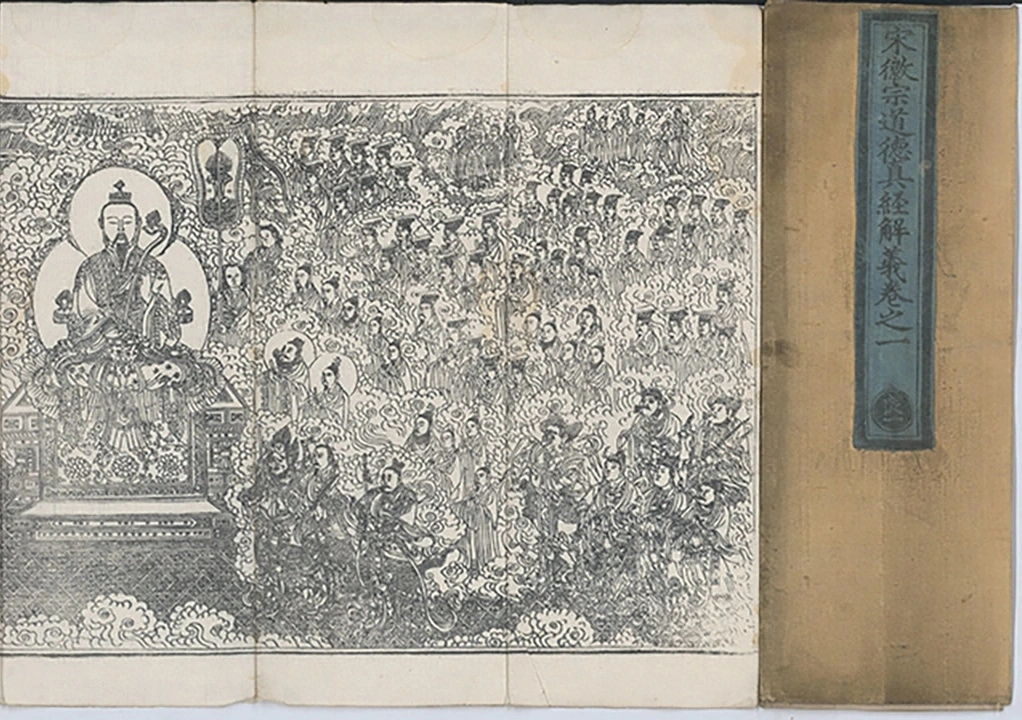 宋徽宗道德真經解義卷之一